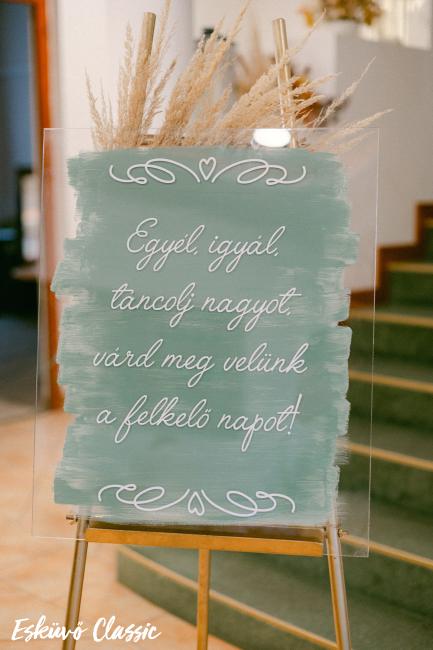 Egyél, igyál,
táncolj nagyot,
várd meg velünk
a felkelő napot!
Esküvő Classic